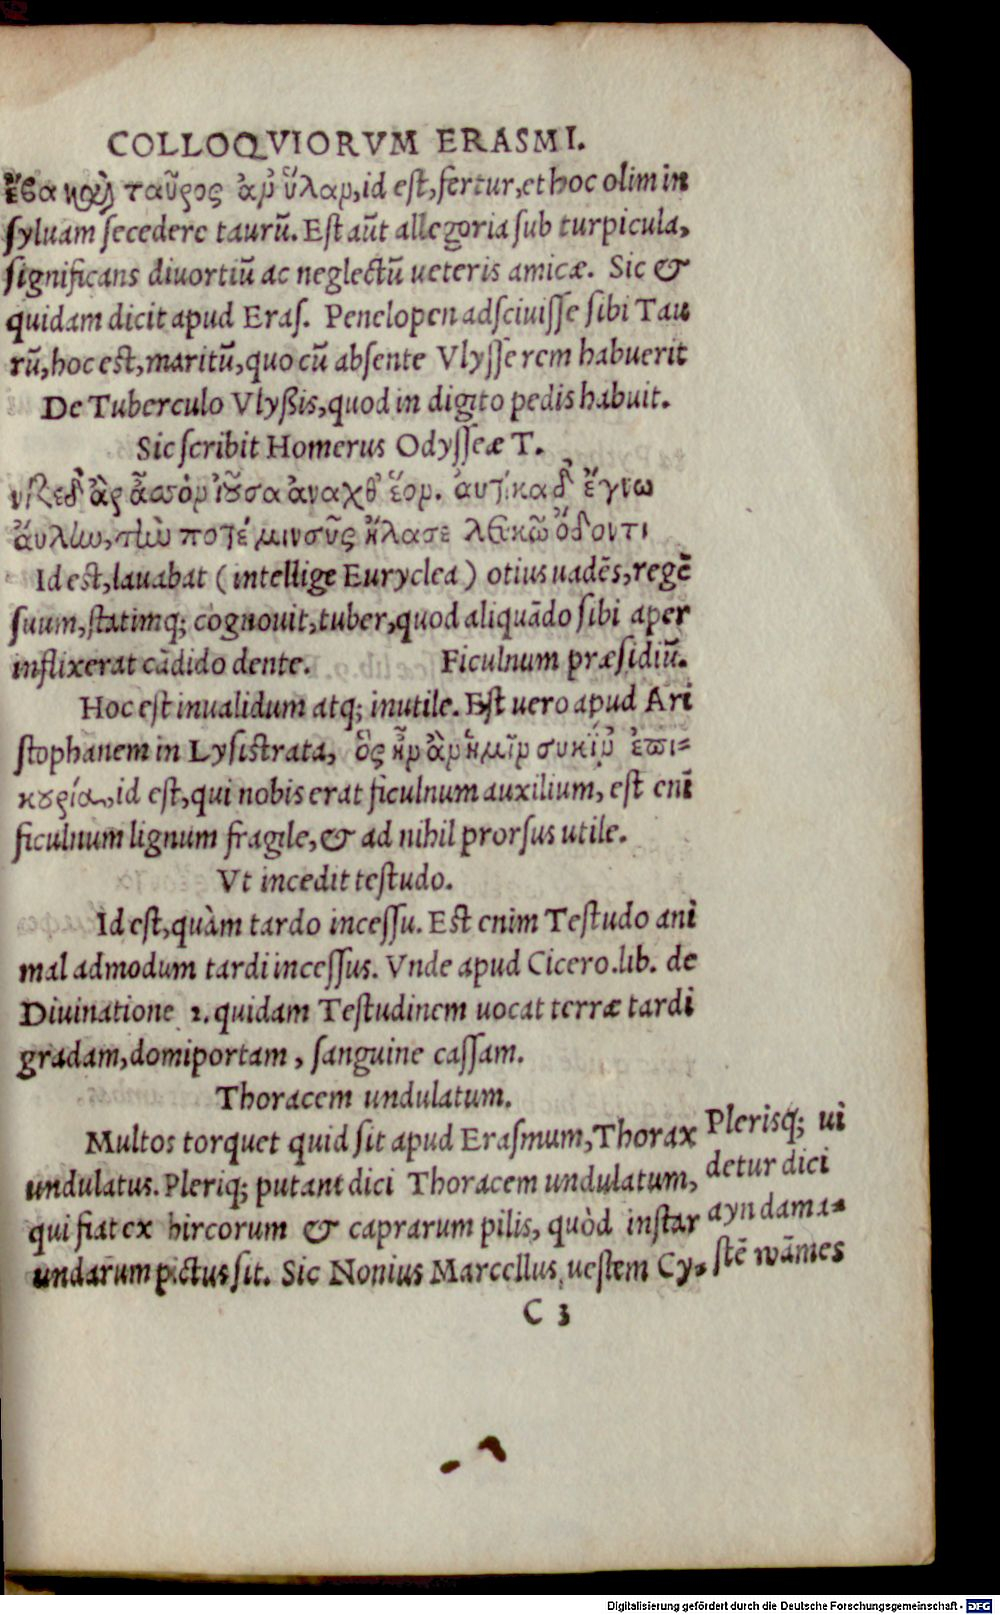 COLLOQVIORVM ERASMI.
ἔβα καὶ ταῦρος ἀν ὕλαν, id est, fertur, et hoc olim in
syluam secedere taurũ. Est aũt allegoria sub turpicula,
significans diuortiũ ac neglectũ ueteris amicæ. Sic &
quidam dicit apud Eras. Penelopen adsciuisse sibi Tau
rũ, hoc est, maritũ, quo cũ absente Vlysse rem habuerit
De Tuberculo Vlyßis, quod in digito pedis habuit.
Sic scribit Homerus Odysseæ T.
νίζε δ' ἂρ ἆσσον ἰοῦσα ἄναχθ' ἑόν. αὐτίκα δ' ἔγνω
οὐλὴν, τὴν ποτέ μιν σῦς ἤλασε λευκῷ ὀδόντι
Id est, lauabat (intellige Euryclea) otius uadẽs, regẽ
suum, statimq; cognouit, tuber, quod aliquãdo sibi aper
inflixerat cãdido dente. Ficulnum præsidiũ.
Hoc est inualidum atq; inutile. Est uero apud Ari
stophanem in Lysistrata, ὃς ἦν ἂν ἡμῖν συκίνη ἐπι-
κουρία, id est, qui nobis erat ficulnum auxilium, est enĩ
ficulnum lignum fragile, & ad nihil prorsus utile.
Vt incedit testudo.
Id est, quàm tardo incessu. Est enim Testudo ani
mal admodum tardi incessus. Vnde apud Cicero. lib. de
Diuinatione 2. quidam Testudinem uocat terræ tardi
gradam, domiportam, sanguine cassam.
Thoracem undulatum.
Multos torquet quid sit apud Erasmum, Thorax
undulatus. Pleriq; putant dici Thoracem undulatum,
qui fiat ex hircorum & caprarum pilis, quòd instar
undarum pictus sit. Sic Nonius Marcellus uestem Cy-
Plerisq; ui
detur dici
ayn dama-
stẽ wãmes
C 3
Digitalisierung gefördert durch die Deutsche Forschungsgemeinschaft - DFG